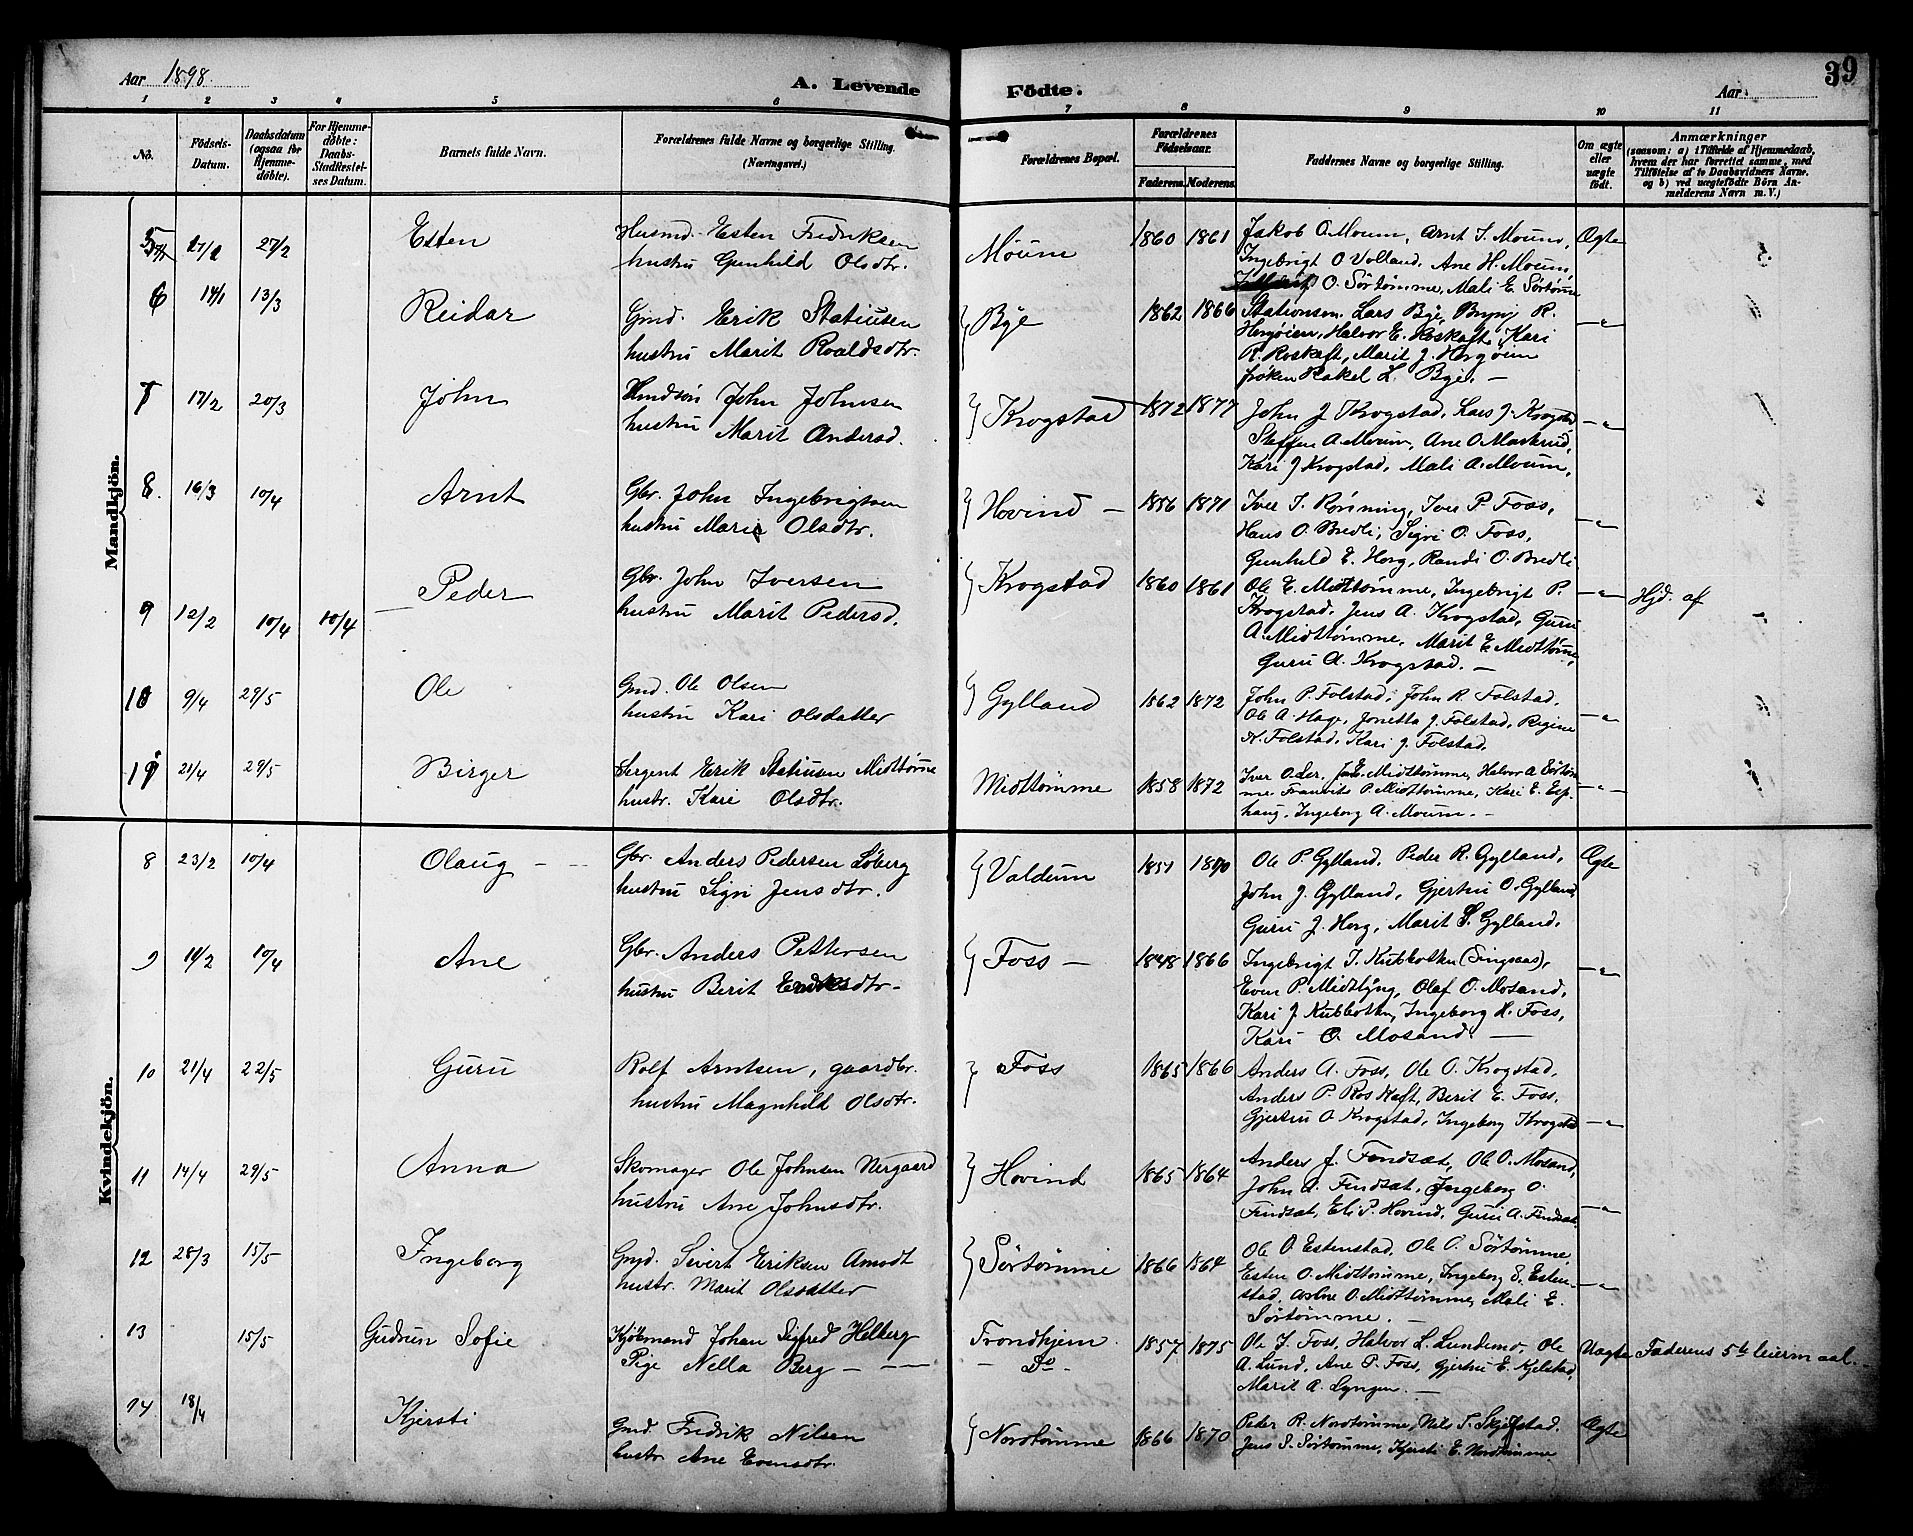 Aar 1898.
A. Levende Födte.
Aar
39
1 2 3 4 5 6 7 8 9 10 11
No.
Födsels-Datum.
Daabsdatum (ogsaa for Hjemmedöbte).
For Hjemmedöbte: Daabs-Stadfæstelses Datum.
Barnets fulde Navn.
Forældrenes fulde Navne og borgerlige Stilling. (Næringsvei.)
Forældrenes Bopæl.
Forældrenes Födselsaar.
Faderens. Moderens.
Faddernes Navne og borgerlige Stilling.
Om ægte eller uægte födt.
Anmærkninger
(saasom: a) i Tilfælde af Hjemmedaab, hvem der har forrettet samme, med Tilföielse af to Daabsvidners Navne, og b) ved uægtefödte Börn Anmelderens Navn m. V.)
Mandkjön.
5 27/2 Esten
Husmd. Esten Fredriksen
hustru Gunhild Olsdtr.
Moum 1860 1861
Jakob O. Moum, Arnt I. Moum,
Ingebrigt O Volland, Ane H. Moum,
O. Sørtømme, Mali E. Sørtømme
Ægte
6 14/1 13/3 Reidar
Gmd. Erik Statiusen
hustru Marit Roaldsdtr.
Bye 1862 1866
Stationsm. Lars Bye, Brynj R.
Horgøien, Halvor E. Roskaft, Kari
R. Roskaft, Marit J. Horgøien
frøken Rakel L. Bye. —
—"—
7 17/2 20/3 John
John Johnsen
hustru Marit Andersd.
Krogstad 1872 1877
John J Krogstad, Lars J. Krogstad,
Steffen A. Moum, Ane O. Maskrud,
Kari J Krogstad, Mali A. Moum,
—"—
8. 16/3 10/4 Arnt
Gbr. John Ingebrigtsen
hustru Mari Olsdtr.
Hovind — 1856 1871
Iver I. Rønning, Iver P. Foss,
Hans O. Bredli, Sigri O. Foss,
Gunhild E. Horg, Randi O. Bredli
—"—
9 12/2 10/4 10/4 Peder
Gbr. John Iversen
hustru Marit Pedersd.
Krogstad 1860 1861
Ole E. Midttømme, Ingebrigt P.
Krogstad, Jens A. Krogstad, Guru
A. Midttømme, Marit E. Midttømme,
Guru A. Krogstad. —
—"— Hjd. af
10 9/4 29/5 Ole
Gmd. Ole Olsen
hustru Kari Olsdatter
Gylland 1862 1872
John P. Folstad, John R. Folstad,
Ole A. Hage, Jonetta J. Folstad, Regine
K. Folstad, Kari J. Folstad.
—"—
11 21/4 29/5 Birger
Sergent Erik Statiusen Midttømme
hustr. Kari Olsdtr.
Midttømme 1858 1872
Iver O. Ler. E. Midttømme, Halvor A. Sørtøm-
me P. Midttømme, Kari E. Esp-
haug, Ingeborg A. Moum. —
—"—
Kvindekjön.
8 23/2 10/4 Olaug — —
Gbr. Anders Pedersen Løberg
hustru Sigri Jensdtr.
Valdum 1851 1870
Ole P. Gylland, Peder R. Gylland,
John J. Gylland, Gjertru O. Gylland,
Guru J. Horg, Marit S. Gylland.
Ægte
9 19/2 10/4 Ane
Gbr. Anders Pettersen
hustru Berit Eriksdtr—
Foss — 1848 1866
Ingebrigt I. Kubbotten (Singsaas),
Even P. Midtlyng, Olaf O. Mosand,
Kari J. Kubbotten, Ingeborg H. Foss,
Kari O. Mosand. —
—"—
10 21/4 22/5 Guru
Rolf Arntsen, gaardbr.
hustru Magnhild Olsdtr.
Foss 1865 1866
Anders A. Foss, Ole O. Krogstad,
Anders P. Roskaft, Berit E. Foss,
Gjertru O. Krogstad, Ingeborg Krogstad
—"—
11 14/4 29/5 Anna
Skomager Ole Johnsen Nergaard
hustru Ane Johnsdtr.
Hovind 1865 1864
Anders J. Fendsæt, Ole O. Mosand,
John A. Fendsæt, Ingeborg O.
Fendsæt, Eli P. Hovind, Guru A. Fendsæt
—"—
12 28/3 15/5 Ingeborg
Gmd. Sivert Eriksen Amodt
hustr. Marit Olsdatter
Sørtømme 1866 1864
Ole O. Estenstad, Ole O. Sørtømme,
Esten O. Midttømme, Ingeborg S. Esten-
stad, O. Midttømme, Mali E.
Sørtømme. —
—"—
13 15/5 Gudrun Sofie
Kjöbmand Johan Sigfred Helberg
Pige Nella Berg — —
Trondhjem.
— Do —
1857 1875
Ole J. Foss, Halvor L. Lundemo, Ole
A. Lund, Ane P. Foss, Gjertru E. Kjelstad,
Marit A. Lyngen. —
Uægte Faderens 5te leiermaal.
14 18/4 Kjersti
Gmd. Fredrik Nilsen
hustr. Ane Evensdtr.
Nordtømme 1866 1870
Peder R. Nordtømme, Nils T. Skjefstad.
Jens S. Sørtømme, Kjersti E. Nordtømme
Ægte